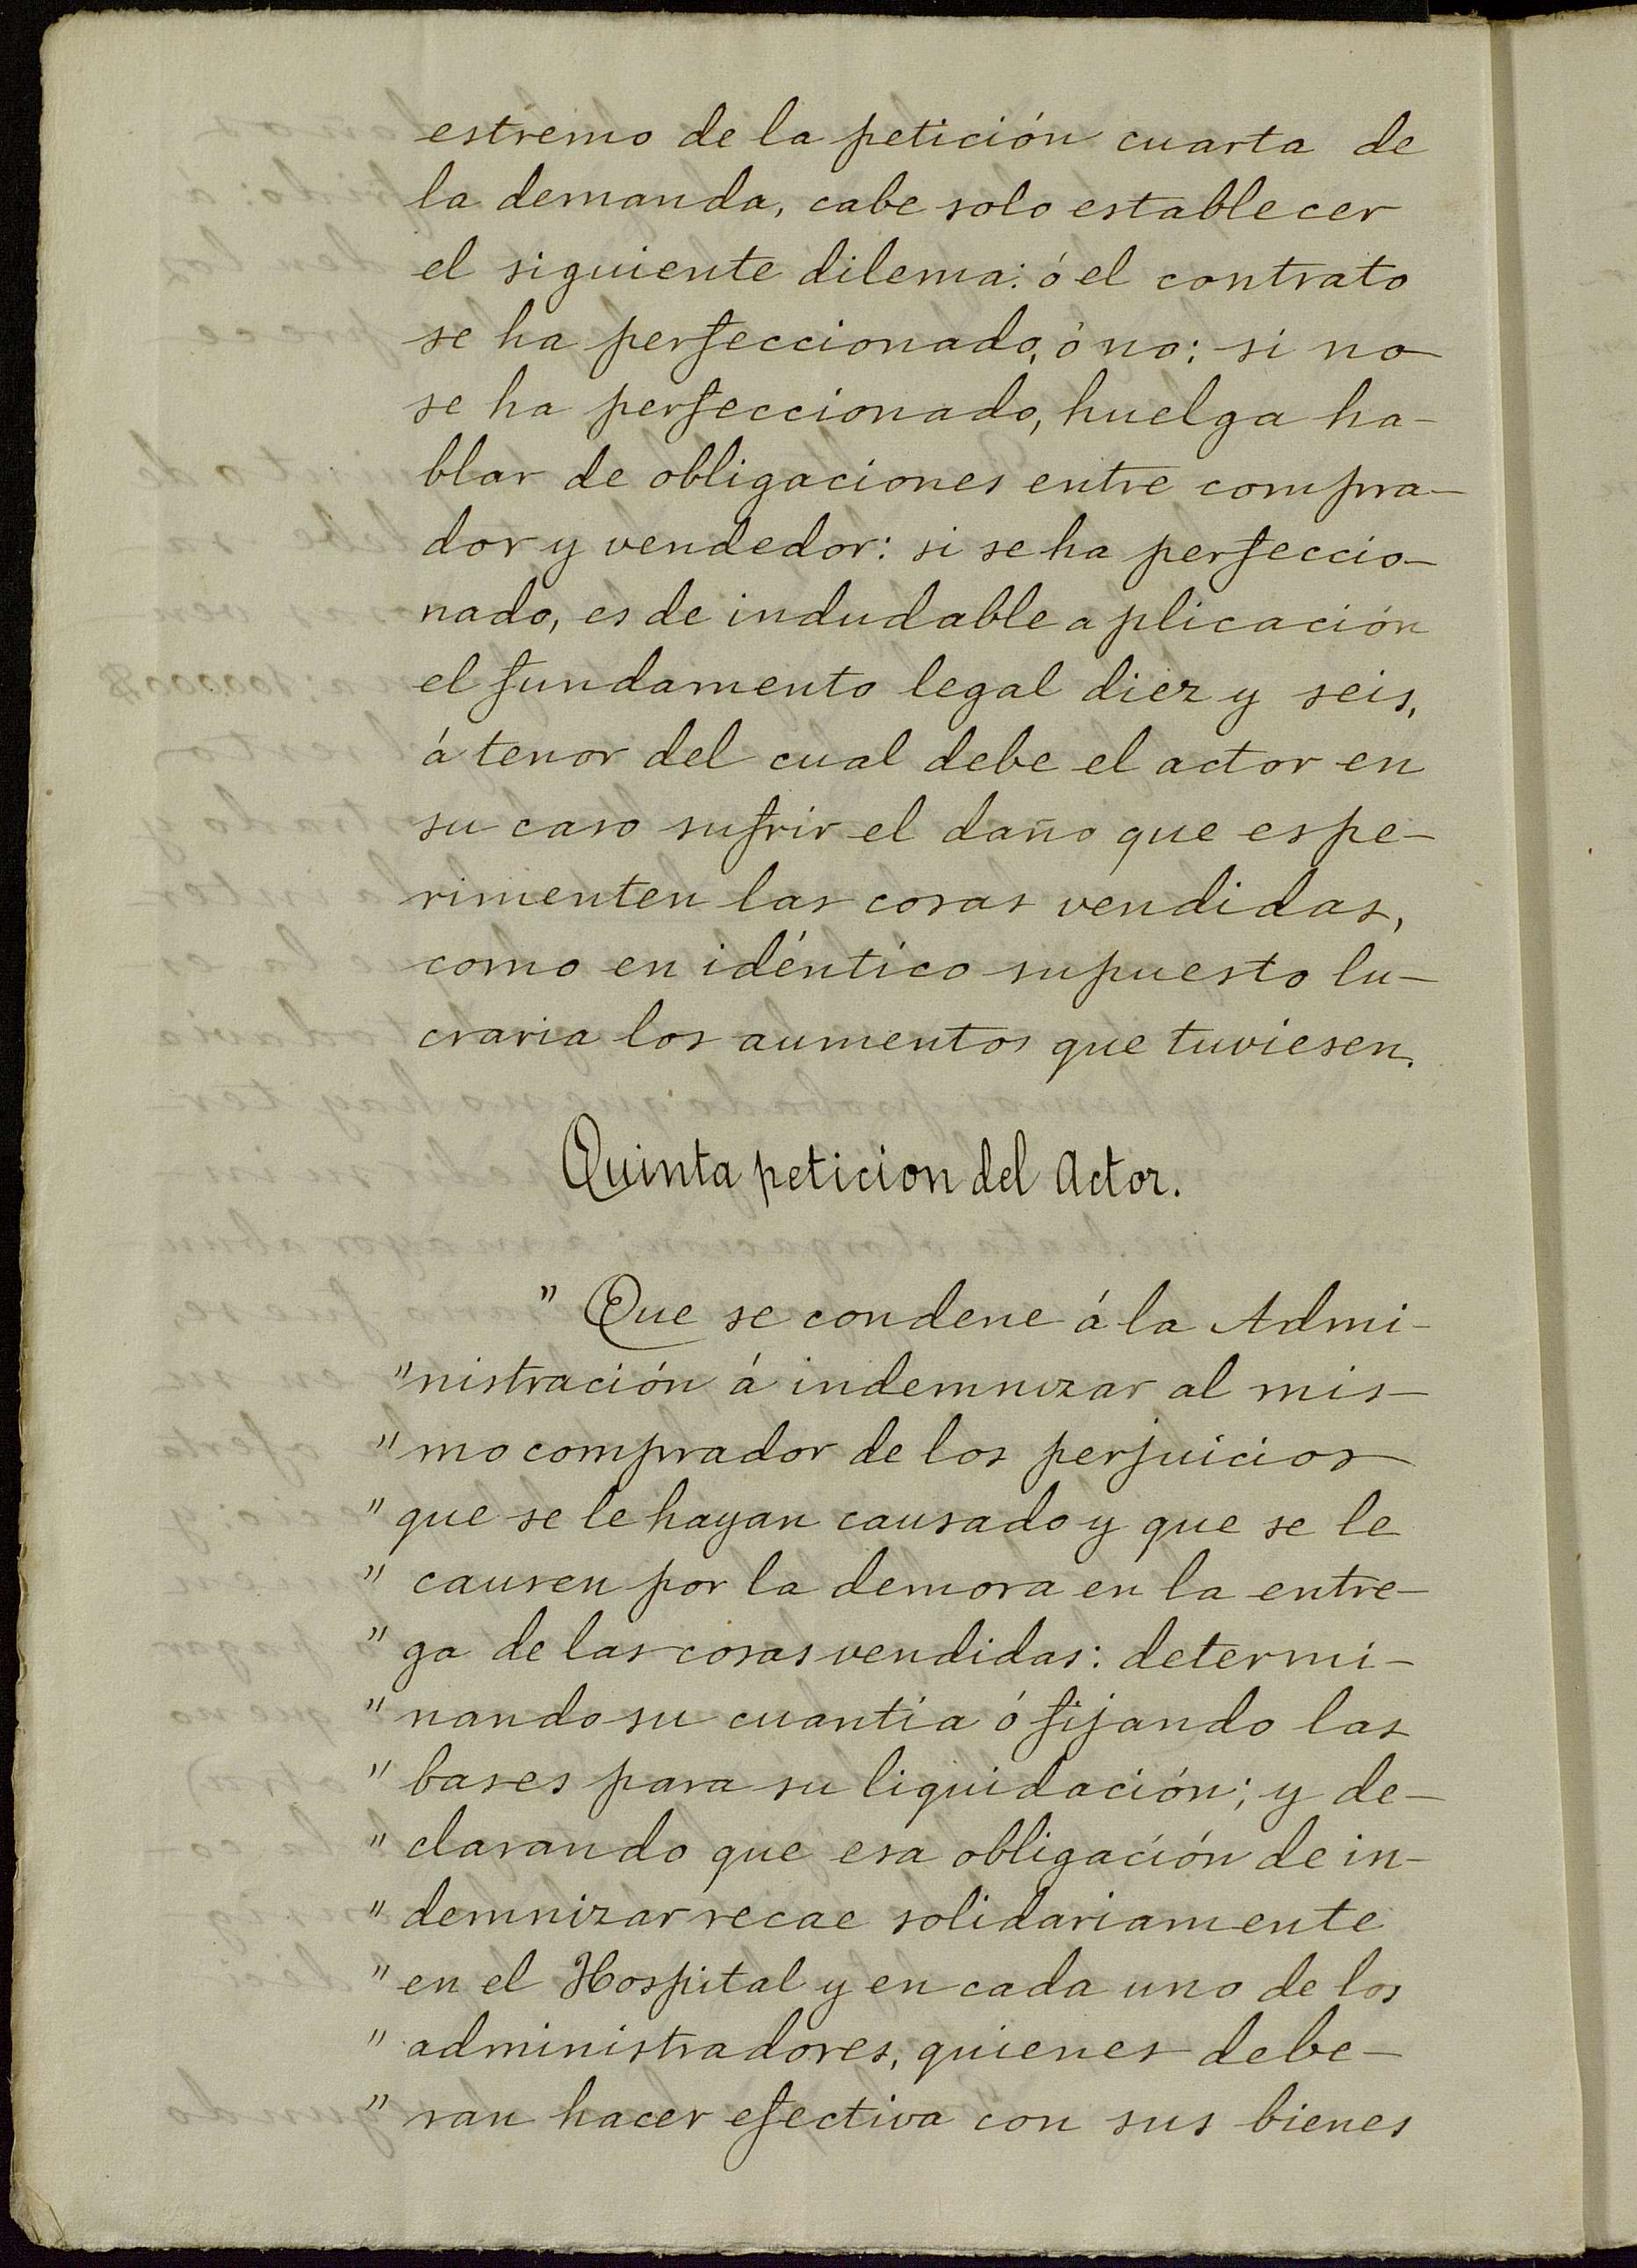 estremo de la petición cuarta de
la demanda, cabe solo establecer
el siguiente dilema: ó el contrato
se ha perfeccionado, ó no: si no
se ha perfeccionado, huelga ha-
blar de obligaciones entre compra-
dor y vendedor: si se ha perfeccio-
nado, es de indudable aplicación
el fundamento legal diez y seis,
á tenor del cual debe el actor en
su caso sufrir el daño que espe-
rimenten las cosas vendidas,
como en idéntico supuesto lu-
craria los aumentos que tuviesen.
Quinta peticion del Actor.
" Que se condene á la Admi-
" nistración á indemnizar al mis-
" mo comprador de los perjuicios
" que se le hayan causado y que se le
" causen por la demora en la entre-
" ga de las cosas vendidas: determi-
" nando su cuantía ó fijando las
" bases para su liquidación; y de-
" clarando que esa obligación de in-
" demnizar recae solidariamente
" en el Hospital y en cada uno de los
" administradores, quienes debe-
" ran hacer efectiva con sus bienes